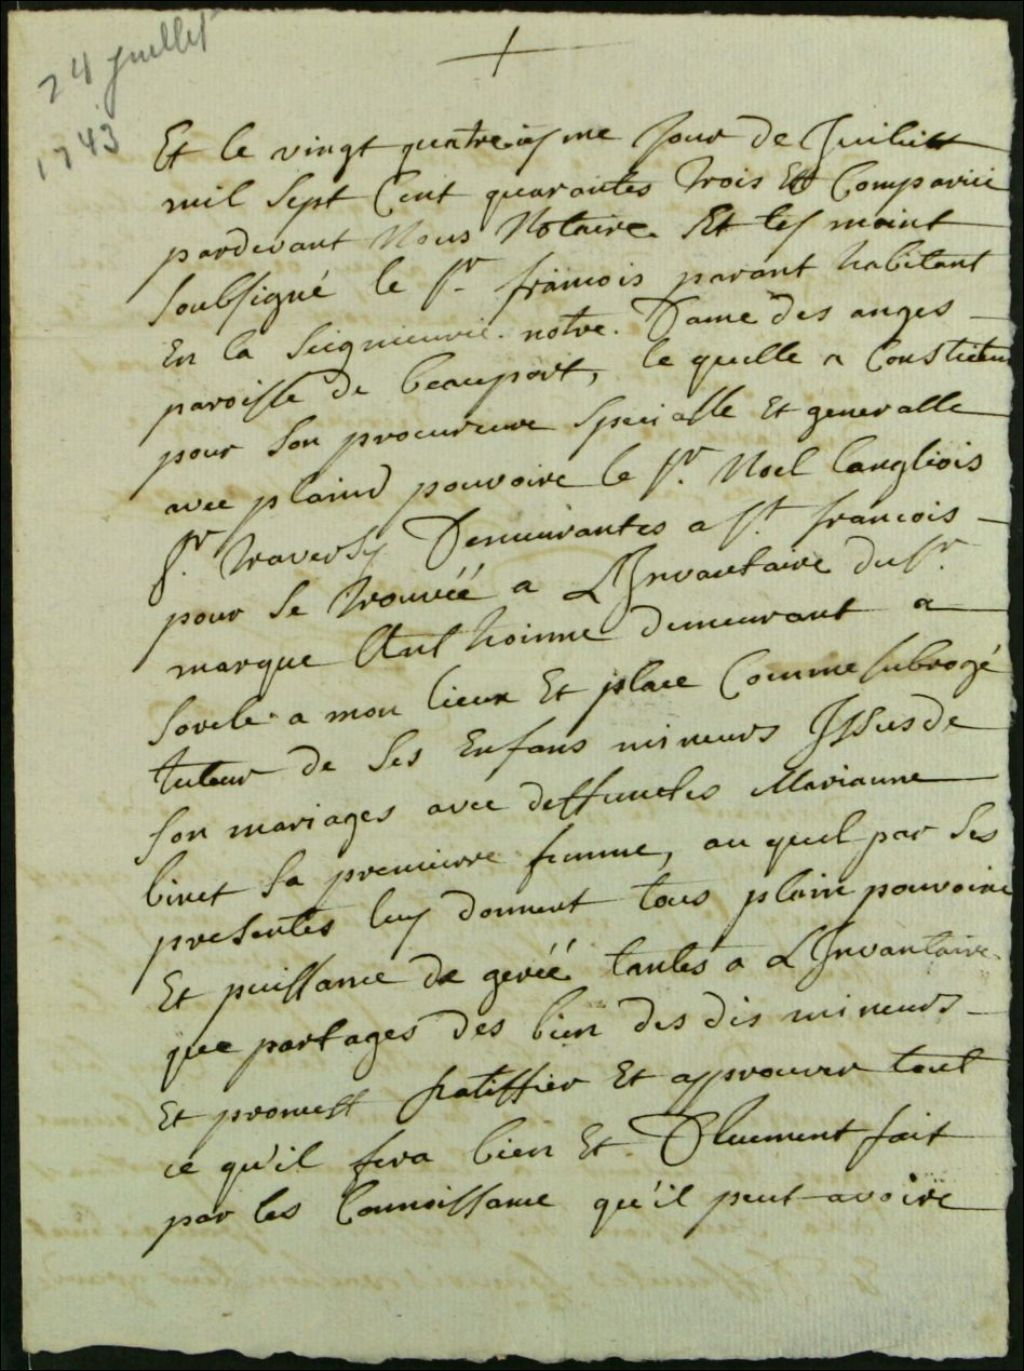 24 Juillet
1743
Et le vingt quatreiesme Jour de Juiliett
mil Sept Cent quarantes trois Est Comparüe
pardevant Nous Notaire Et tesmoint
Soubsigné le Sr. françois parant habitant
En la Seignieurie notre Dame des anges
paroisse de beauport, le quelle a Constitue
pour Son procureure Specialle Et generalle
avec plaind pouvoire le Sr. Noel langliois
Sr. traversy Demeurantes a St. francois
pour Se trouvéé a L'Invantaire du Sr.
marque Anthoinne demeurant a
Sorele a mon lieux Et place Comme subrogé
tuteur de Ses Enfans mineurs Issus de
Son mariages avec deffunctes Marianne
binet Sa premierre femme, au quel par Ses
presentes luy donnent tous plain pouvoire
Et puissance de geréé tantes a L'Invantaire
que partages des bien des dis mineurs
Et promest ratiffier Et approuver tout
ce qu'il fera bien Et Duement fait
par les Connoissance qu'il peut avoire